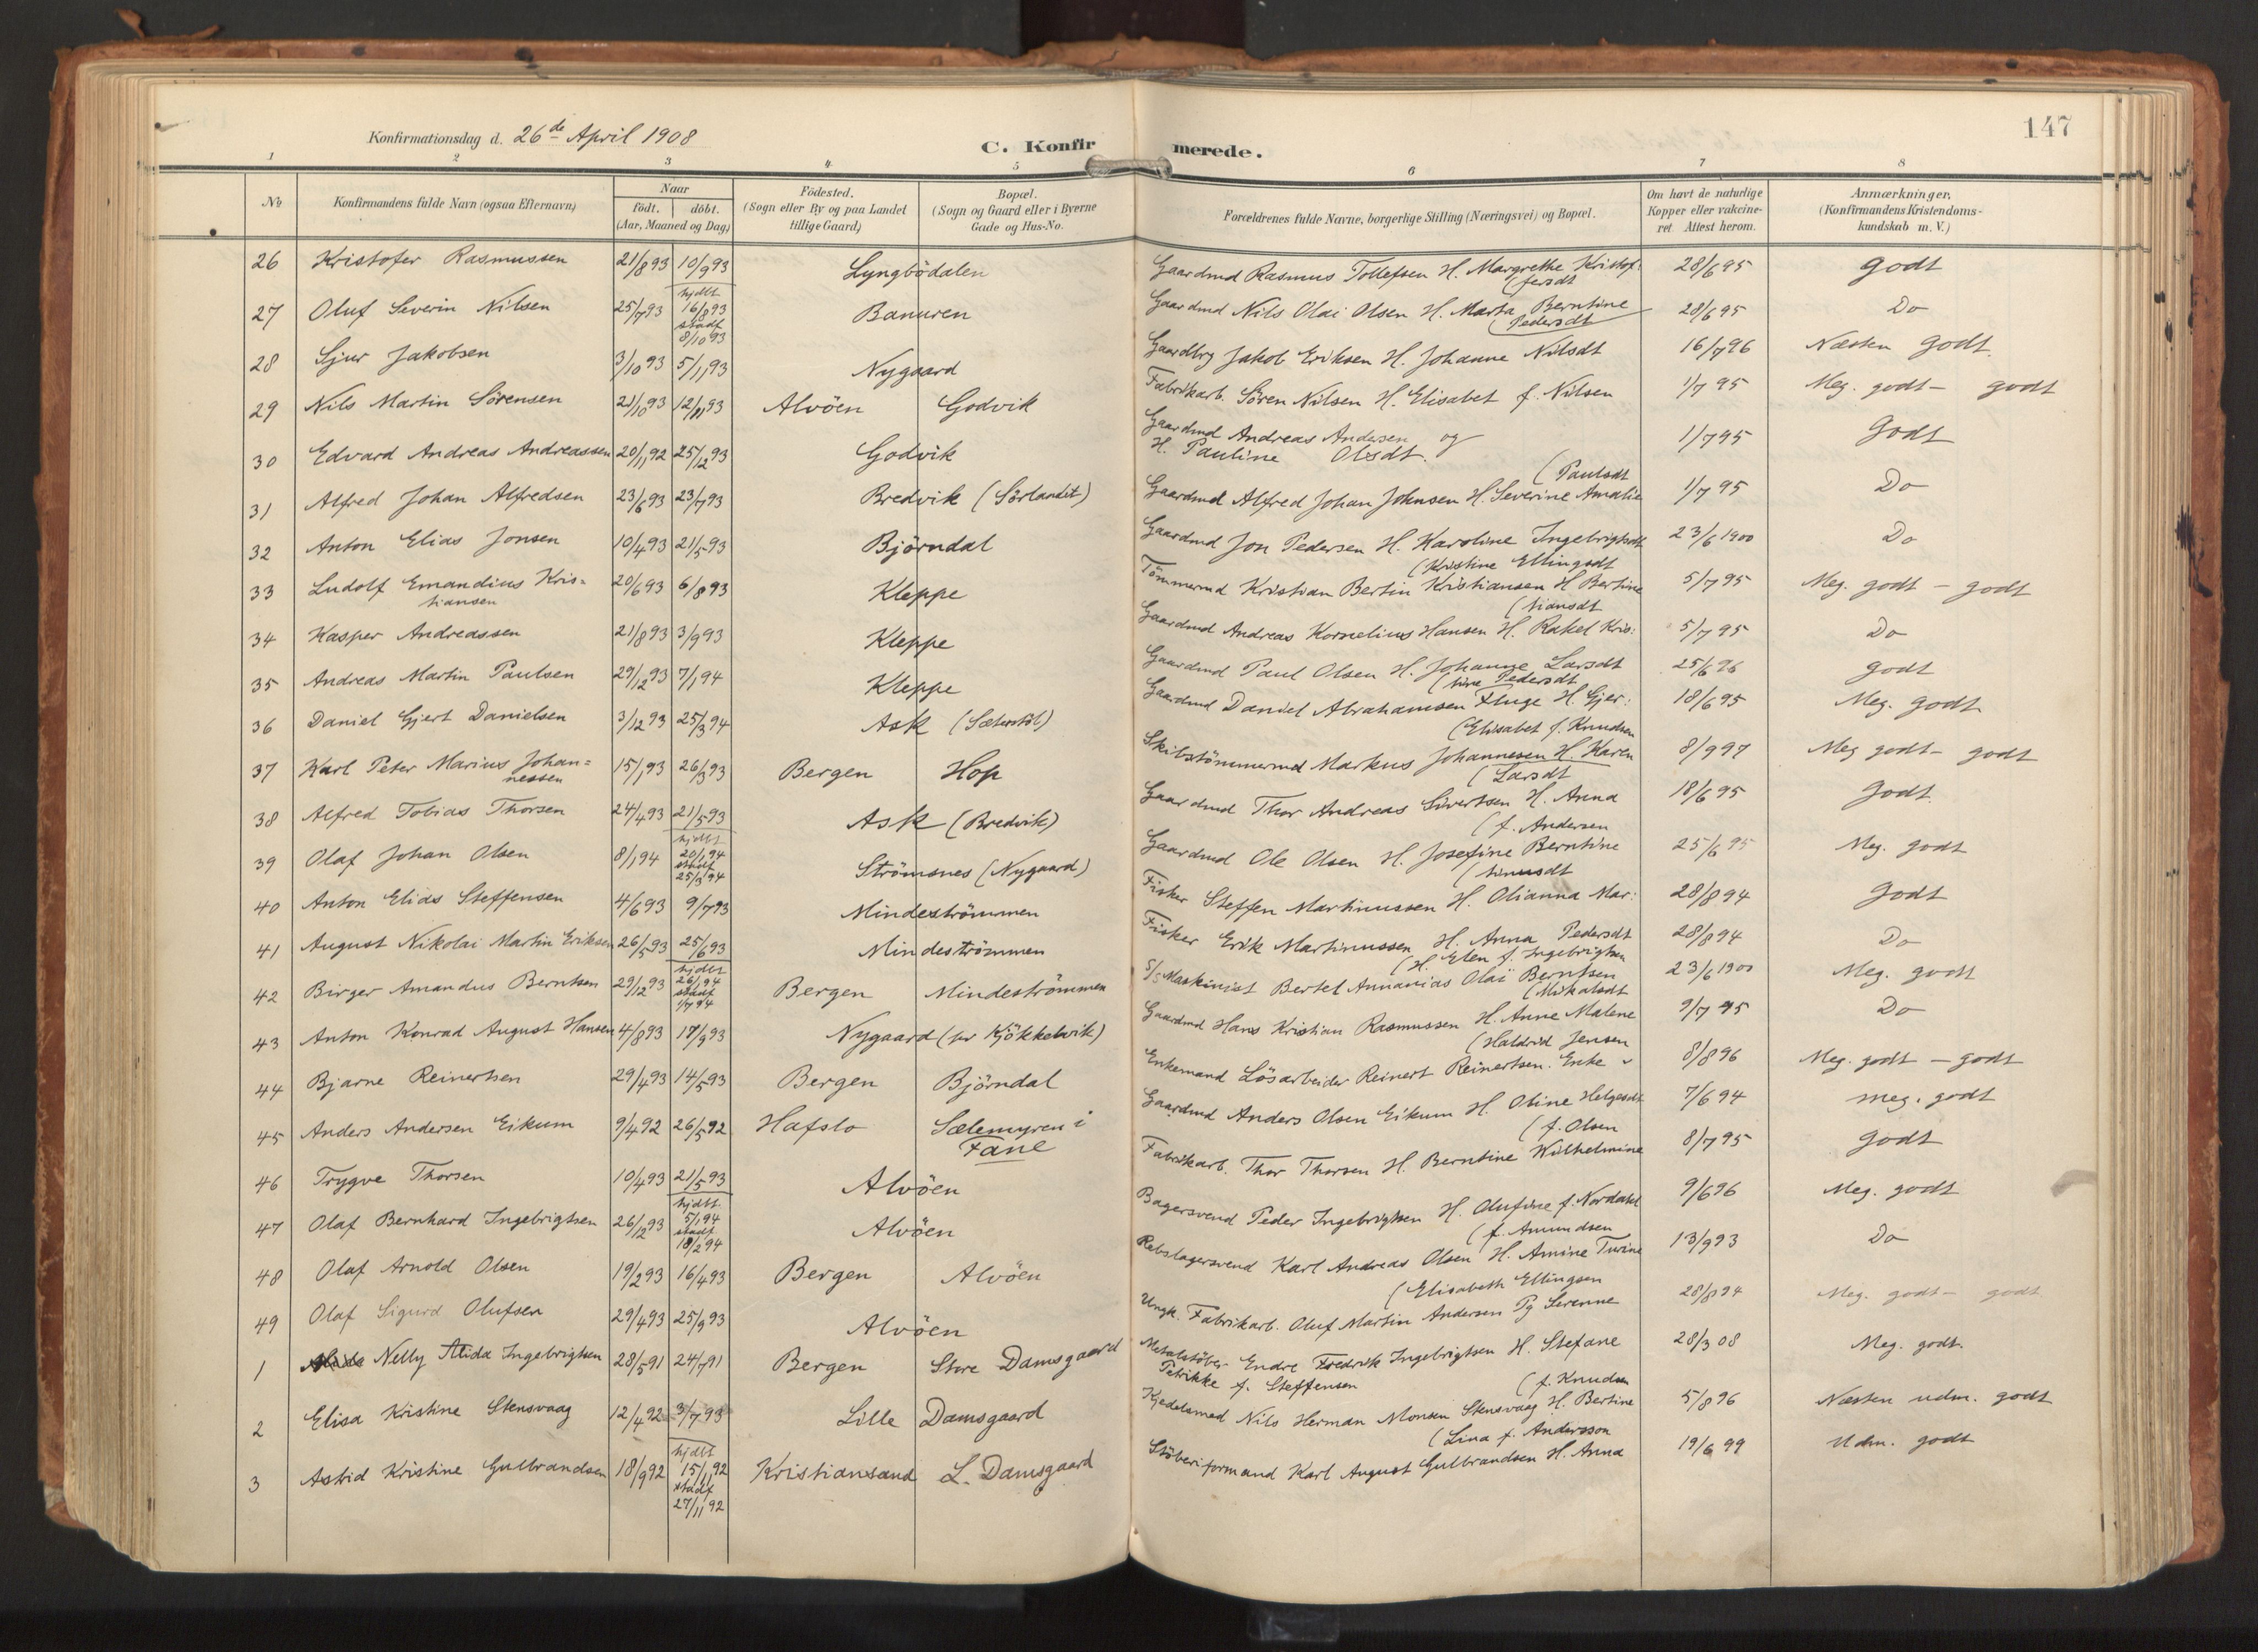 147
Konfirmationsdag d. 26de April 1908
C. Konfirmerede.
1 2 3 4 5 6 7 8
No
Konfirmandens fulde Navn (ogsaa Efternavn)
Naar
födt. döbt.
(Aar, Maaned og Dag)
Födested.
(Sogn eller By og paa Landet
tillige Gaard)
Bopæl.
(Sogn og Gaard eller i Byerne
Gade og Hus-No.
Forældrenes fulde Navne, borgerlige Stilling (Næringsvei) og Bopæl.
Om havt de naturlige
Kopper eller vakcine-
ret. Attest herom.
Anmærkninger,
(Konfirmandens Kristendoms-
kundskab m. V.)
26 Kristofer Rasmussen 21/8 93 10/9 93 Lyngbödalen Gaardmd Rasmus Tollefsen H. Margrethe Kristof: 28/6 95 godt
(fersdt
27 Oluf Severin Nilsen 25/7 93 hjdbt 16/8 93 stadf 8/10 93 Banuren Gaardmd Nils Olai Olsen H. Marta Berntine 28/6 95 Do
(Pedersdt
28 Sjur Jakobsen 3/10 93 5/11 93 Nygaard Gaardbrg Jakob Eriksen H. Johanne Nilsdt 16/7 96 Næsten godt.
29 Nils Martin Sörensen 21/10 93 12/11 93 Alvöen Godvik Fabrikarb. Sören Nilsen H. Elisabet f. Nilsen 1/7 95 Meg. godt - godt
30 Edvard Andreas Andreassen 20/11 92 25/12 93 Godvik Gaardmd Andreas Andersen og 1/7 95 Godt
H. Pauline Olsdt.
31 Alfred Johan Alfredsen 23/6 93 23/7 93 Bredvik (Sörlandet) Gaardmd Alfred Johan Johnsen H. Severine Amalie 1/7 95 Do
(Paulsdt
32 Anton Elias Jonsen 10/4 93 21/5 93 Björndal Gaardmd Jon Pedersen H. Karoline Ingebrigtsdt 23/6 1900 Do
33 Ludolf Emandius Kris= 20/6 93 6/8 93 Kleppe Tömmermd Kristian Bertin Kristiansen H Bertine 5/7 95 Meg. godt - godt
tiansen (Kristine Ellingsdt
34 Kasper Andreassen 21/8 93 3/9 93 Kleppe Gaardmd Andreas Kornelius Hansen H. Rakel Kris: 5/7 95 Do
(tiansdt
35 Andreas Martin Paulsen 29/12 93 7/1 94 Kleppe Gaardmd Paul Olsen H. Johanne Larsdt 25/6 96 godt
36 Daniel Gjert Danielsen 3/12 93 25/3 94 Ask (Sæterstöl) Gaardmd Daniel Abrahamsen Fluge H. Gjer: 18/6 95 Meg. godt
(tine Pedersdt
37 Karl Peter Marius Johan= 15/1 93 26/3 93 Bergen Hop Skibstömmermd Markus Johannesen H. Karen 8/9 97 Meg godt - godt
nessen (Elisabet f. Knudsen
38 Alfred Tobias Thorsen 24/4 93 21/5 93 Ask (Bredvik) Gaardmd Thor Andreas Sivertsen H. Anna 18/6 95 Godt.
(Larsdt
39 Olaf Johan Olsen 8/1 94 hjdbt 20/1 94 stadf 25/3 94 Strömsnes (Nygaard) Gaardmd Ole Olsen H. Josefine Berntine 25/6 95 Meg. godt
(f. Andersen
40 Anton Elias Steffensen 4/6 93 9/7 93 Mindeströmmen Fisker Steffen Martinussen H. Olianna Mar: 28/8 94 Godt
(tinusdt
41 August Nikolai Martin Eriksen 26/5 93 25/6 93 Mindeströmmen Fisker Erik Martinussen H. Anna Pedersdt 28/8 94 Do
42 Birger Amandus Berntsen 29/12 93 hjdbt 26/1 94 stadf 1/7 94 Bergen Mindeströmmen S/s Maskinist Bertel Annanias Olaï Berntsen 23/6 1900 Meg. godt
(H. Elen f. Ingebrigtsen
43 Anton Konrad August Hansen 4/8 93 17/9 93 Nygaard (pr Kjökkelvik) Gaardmd Hans Kristian Rasmussen H. Anne Malene 9/7 95 Do
(Mikalsdt
44 Bjarne Reinertsen 29/4 93 14/5 93 Bergen Björndal Enkemand Lösarbeider Reinert Reinertsen. Enke 8/8 96 Meg. godt - godt
(Haldrid Jensen
45 Anders Andersen Eikum 9/4 92 26/5 92 Hafslo Sælemyren i Gaardmd Anders Olsen Eikum H. Oline Helgesdt 7/6 94 meg. godt
Fane
46 Trygve Thorsen 10/4 93 21/5 93 Alvöen Fabrikarb. Thor Thorsen H. Berntine Wilhelmine 8/7 95 godt
(f. Olsen
47 Olaf Bernhard Ingebrigtsen 26/12 93 hjdbt 5/1 94 stadf 18/2 94 Alvöen Bagersvend Peder Ingebrigtsen H. Olufine f. Nordahl 9/6 96 Meg. godt
48 Olaf Arnold Olsen 19/2 93 16/4 93 Bergen Alvöen Rebslagersvend Karl Andreas Olsen H. Amine Turine 13/9 93 Do
(f. Amundsen
49 Olaf Sigurd Olufsen 29/4 93 25/3 93 Alvöen Ungk. Fabrikarb. Oluf Martin Andersen Pg Serenne 28/8 94 Meg. godt - godt
(Elisabeth Ellingsen
1 Nelly Alida Ingebrigtsen 28/5 91 24/7 91 Bergen Store Damsgaard Metalstöber Endre Fredrik Ingebrigtsen H. Stefane 28/3 08 Meg. godt.
Petrikke f. Steffensen
2 Elisa Kristine Stensvaag 12/4 92 3/7 93 Lille Damsgaard Kjedelsmed Nils Herman Monsen Stensvaag H. Bertine 5/8 96 Næsten udm. godt
(f. Knudsen
3 Astrid Kristine Gulbrandsen 18/9 92 hjdbt 15/11 92 stadf 27/11 92 Kristiansand L. Damsgaard Stöberiformand Karl August Gulbrandsen H. Anna 19/6 99 Udm. godt
(Lina f. Andersson